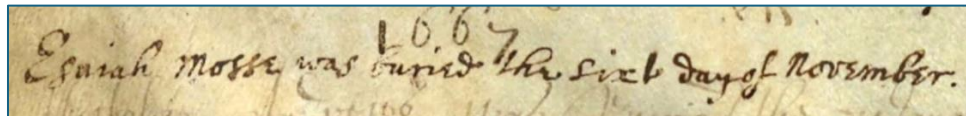 1667
Esaiah Mosse was buried the sixt day of November.